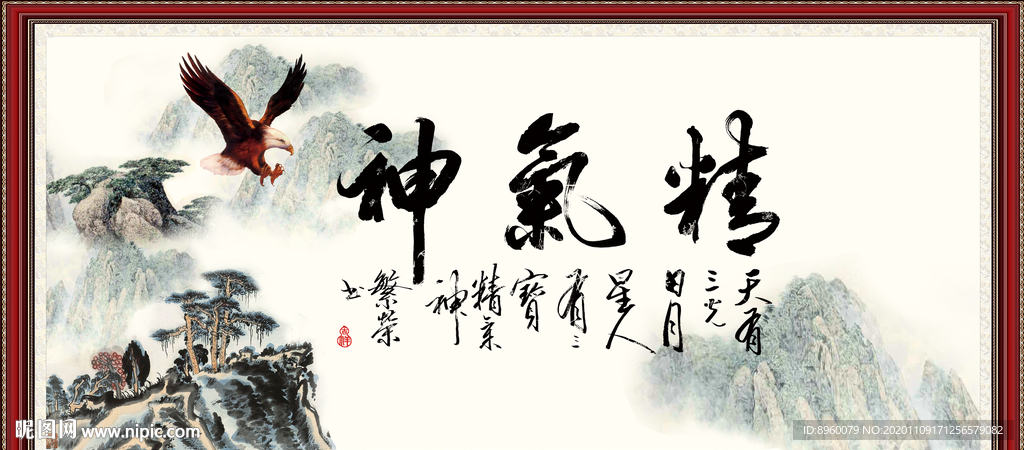 精氣神
天有
三光
日月
星人
有三
寶
精氣
神
繁榮
书
昵图网 www.nipic.com
ID:8960079 NO:20201109171256579082